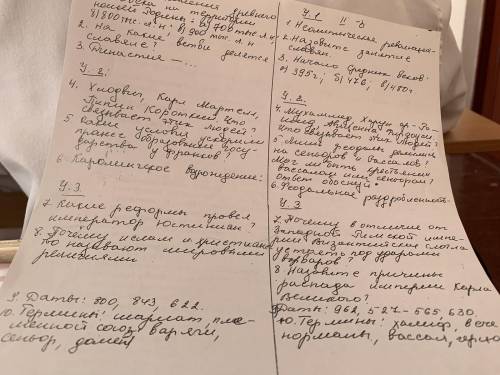 древнего
нашей Родины: а) 700 тыс. л. н
б) 800 тыс. л. н; в) 900 тыс. л. н
2. На какие ветви делятся
славяне?
3. Династия – ...
У. 2:
4. Хлодвиг, Карл Мартелл,
Пипин Короткий. Что
связывает этих людей?
5 Какие условия ускорили
процесс образования госу-
дарства у франков?
6. Каролингское Возрождение:
У. 3
7. Какие реформы провел
император Юстиниан?
8. Почему ислам и христиан
во называют мировыми
религиями
9. Даты: 800, 843, 622.
10. Термины: шариат, пле-
менной союз, варяги,
сеньор, домен
У. 1 II - в
1. Неолитическая революция-
2. Назовите занятие
славян.
3. Начало Средних веков:
а) 395г; б) 476; в) 480г
У. 2.
4. Мухаммед, Харун ар-Ра-
шид, Авиценна, Фирдоуси
Что связывает этих людей?
5. Листр феодалы делились
на сеньоров и вассалов?
Мог ли быть крестьянин
вассалом или сеньором?
ответ обоснуй.
6. Феодальная раздробленность-
У. 3
7. Почему в отличие от
Западной Римской импе-
рии Византийская смогла
устоять под ударами
варваров
8 Назовите причины
распада империи Карла
Великого?
Даты: 962, 527-565, 630.
10. Термины: халиф, вече
норманы, вассал,